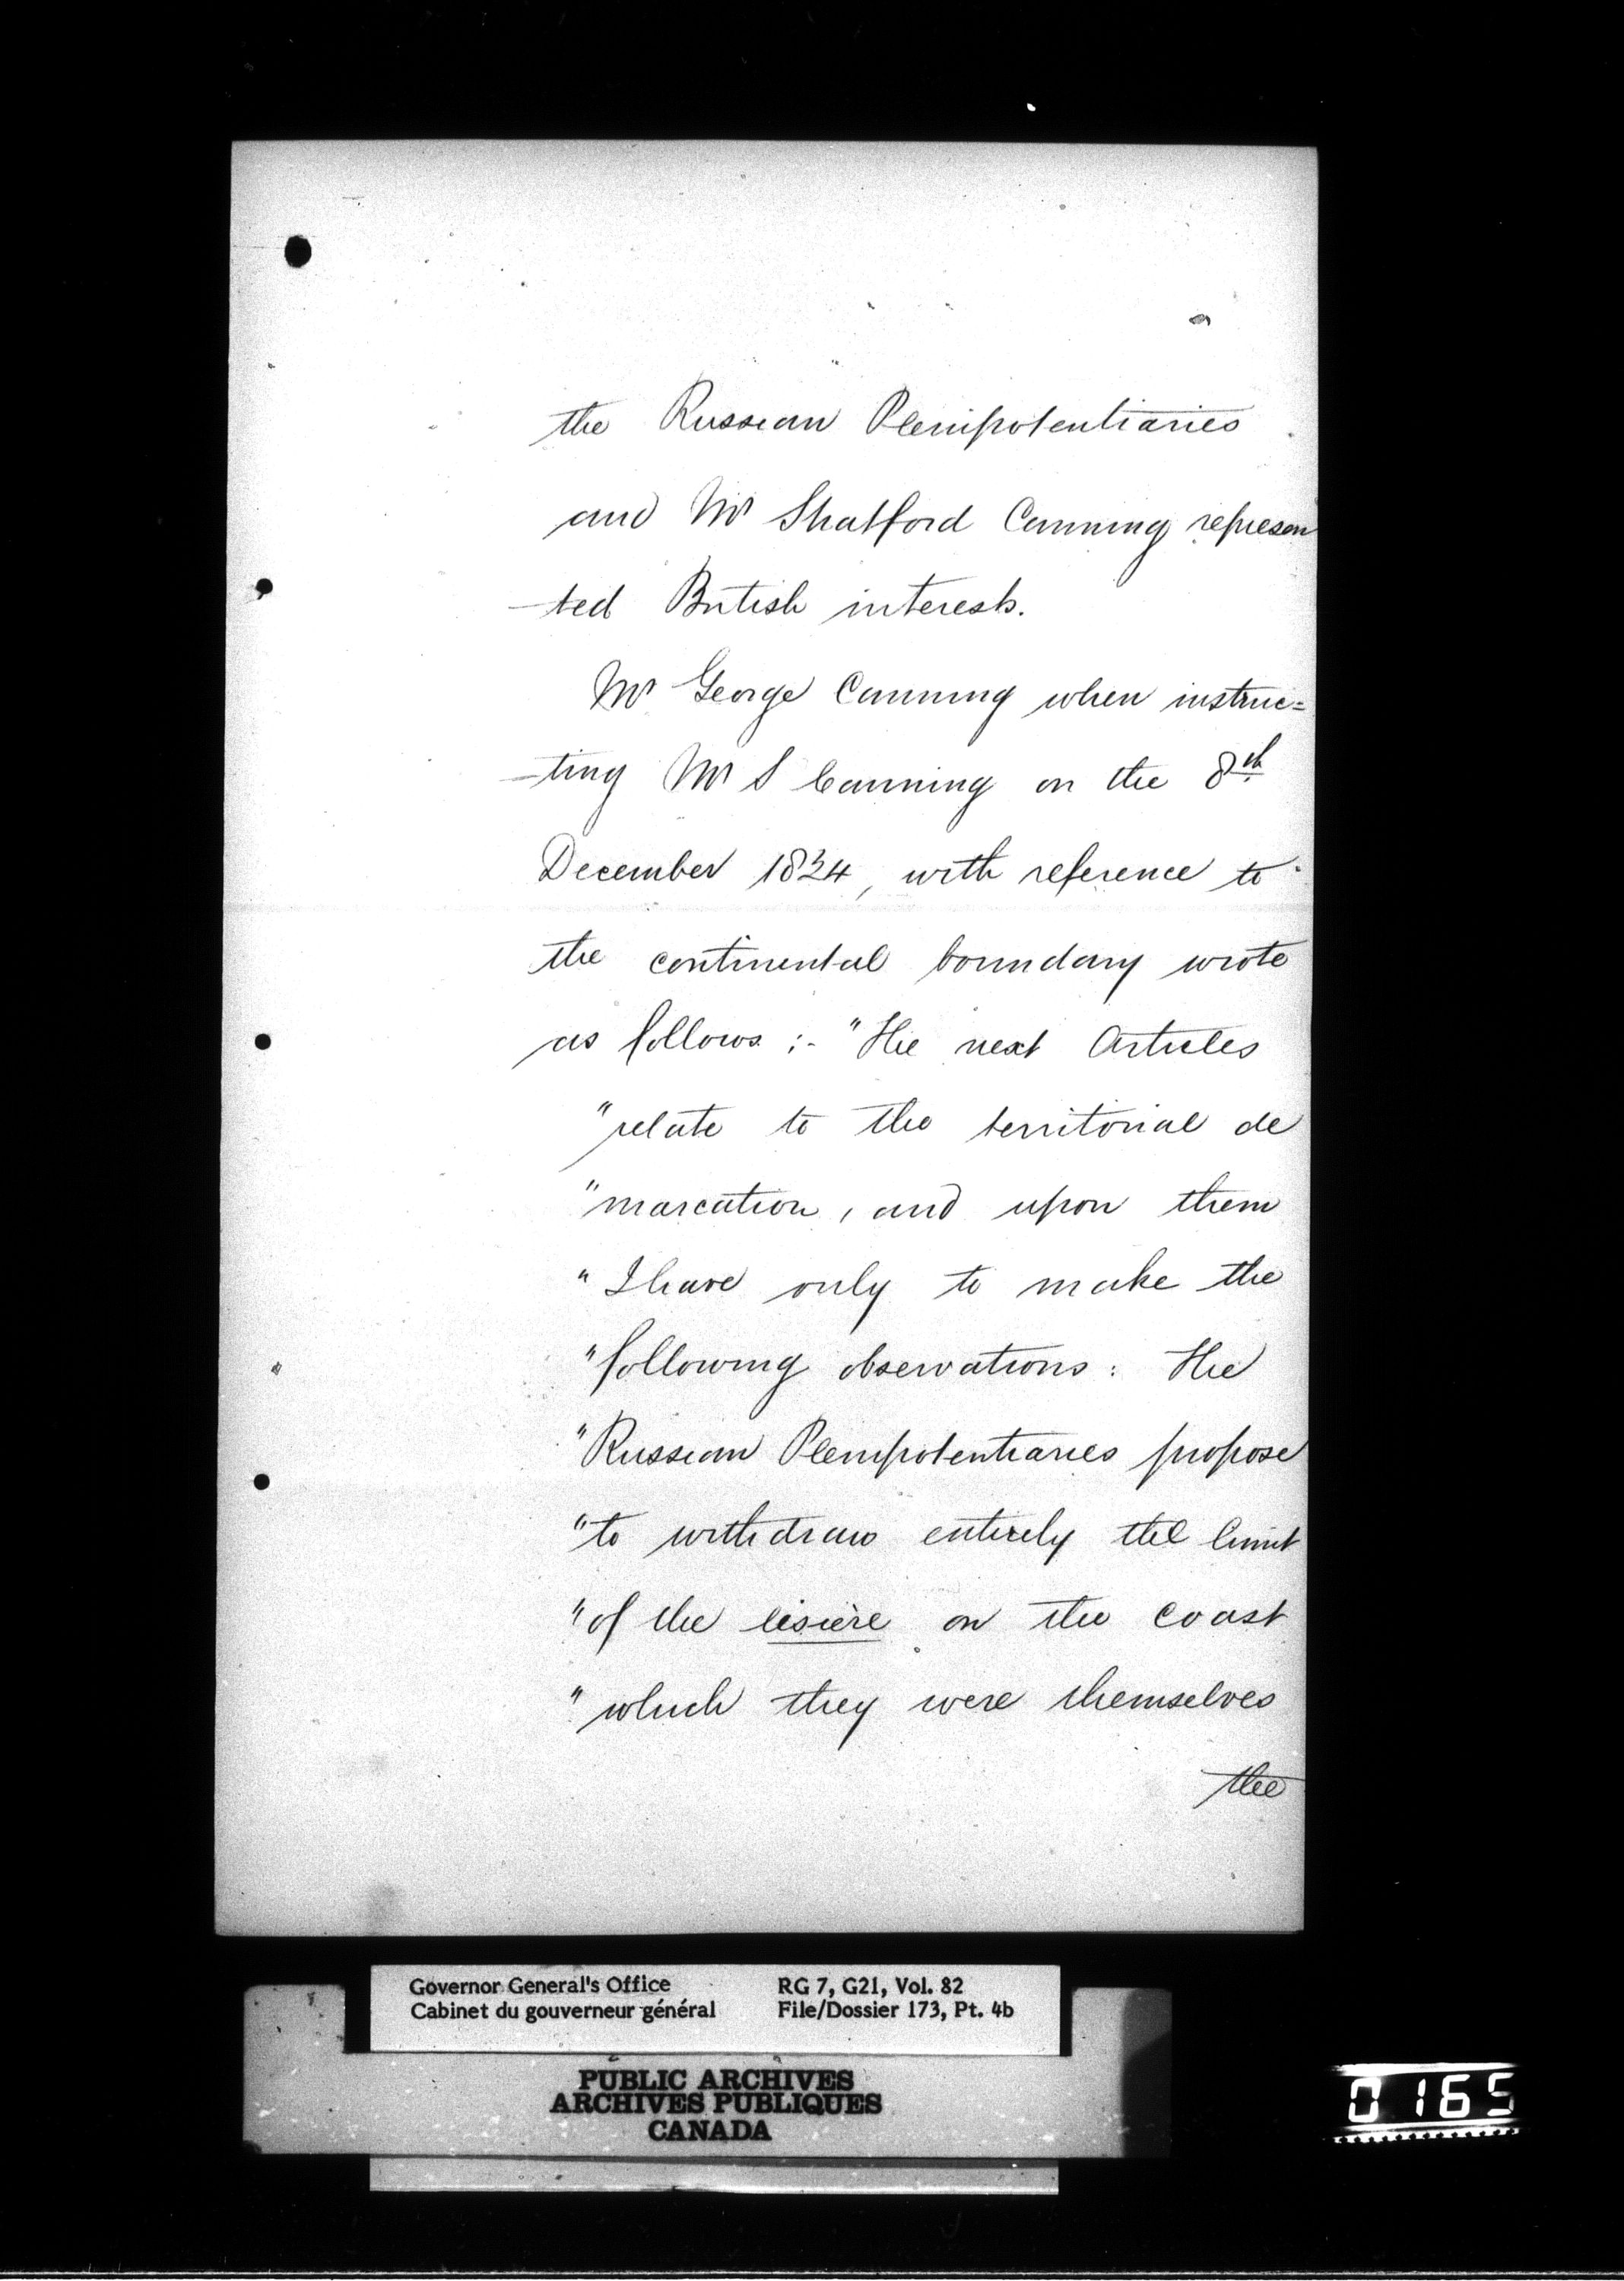 the Russian Plenipotentiaries
and Mr Stratford Canning represen
-ted British interests.
Mr George Canning when instruc=
-ting Mr S Canning on the 8th
December 1824, with reference to
the continental boundary wrote
as follows :- "The next Articles
"relate to the territorial de
"marcation, and upon them
"I have only to make the
"following observations : The
"Russian Plenipotentiaries propose
"to withdraw entirely the limit
"of the lisière on the coast
"which they were themselves
the
Governor General's Office RG 7, G21, Vol. 82
Cabinet du gouverneur général File/Dossier 173, Pt. 4b
PUBLIC ARCHIVES
ARCHIVES PUBLIQUES
CANADA
0165